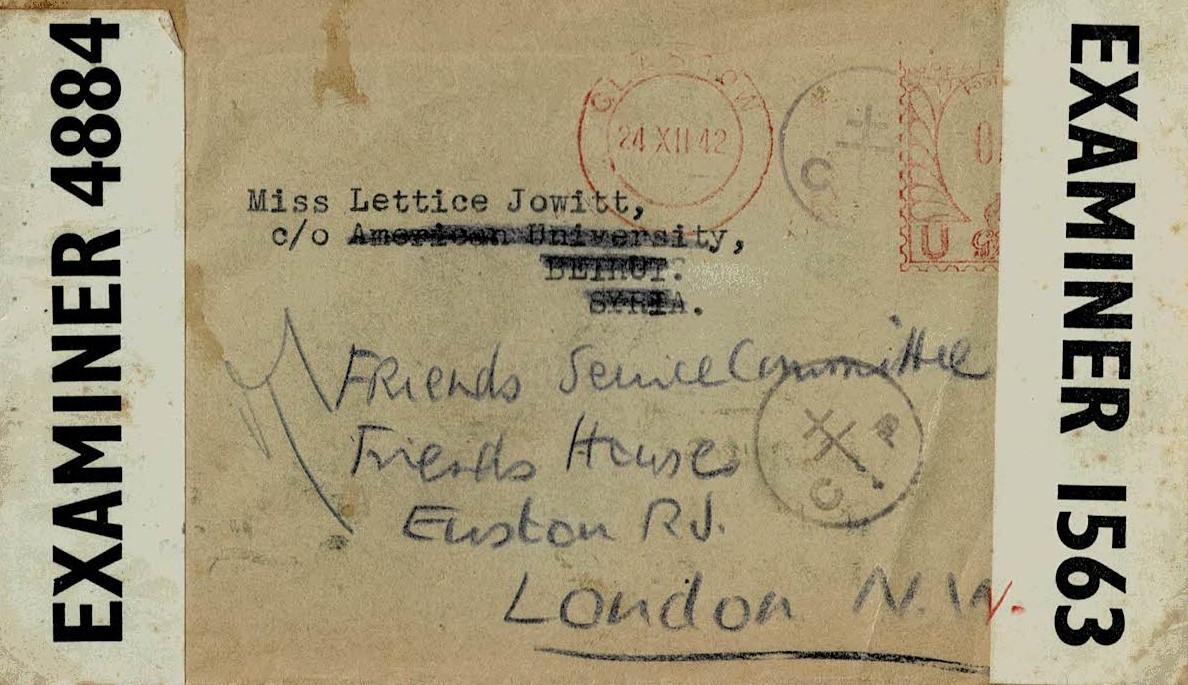 EXAMINER 4884
24 XII 42
Miss Lettice Jowitt,
c/o American University,
BEIRUT.
SYRIA.
Friends Service Committee
Friends House
Euston Rd.
London N.W.
C
U
EXAMINER 1563